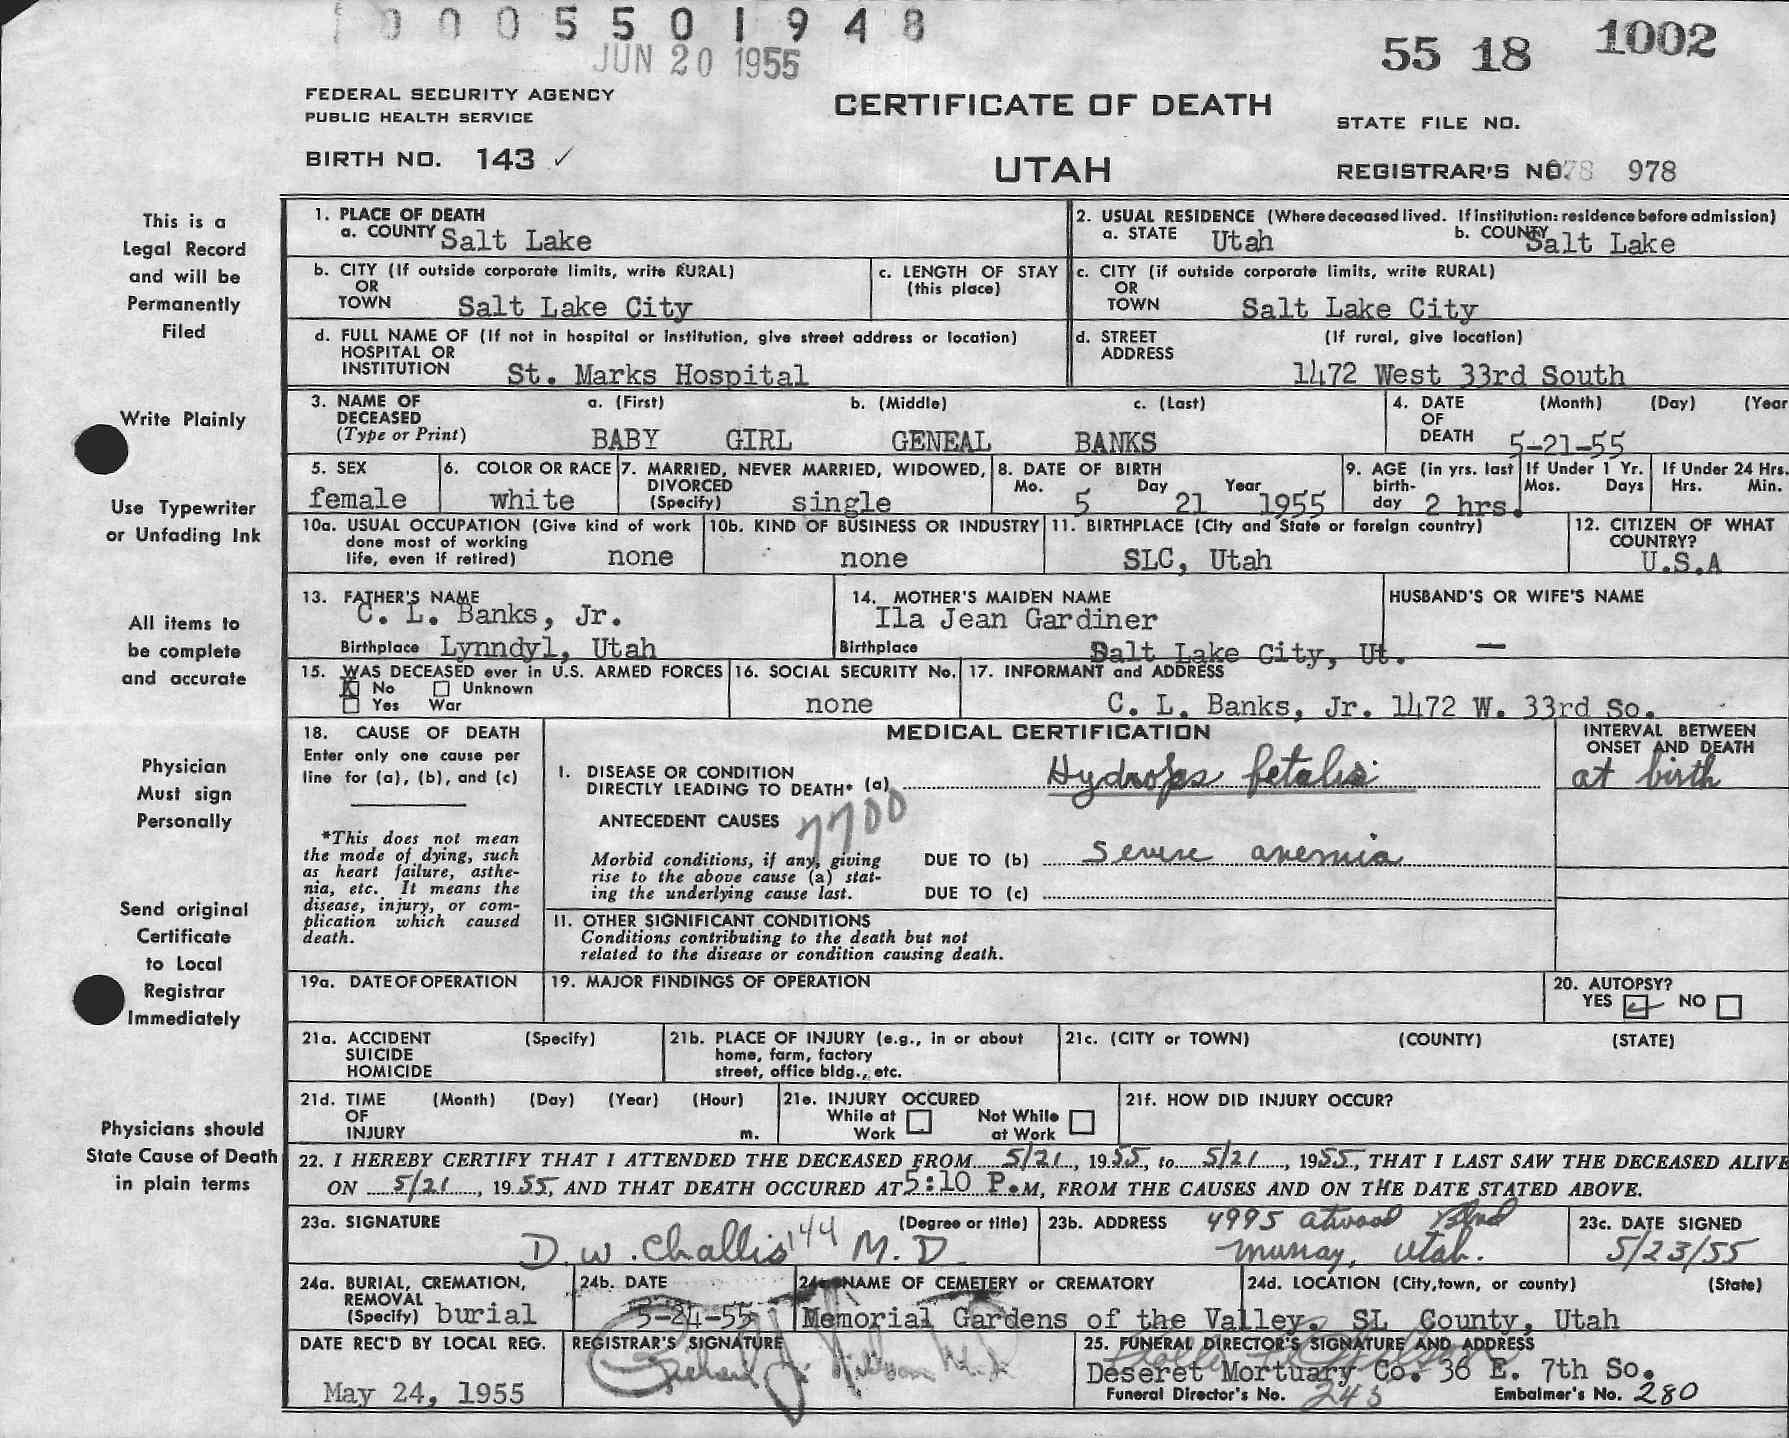 0 0 0 5 5 0 1 9 4 8
JUN 20 1955
55 18 1002
FEDERAL SECURITY AGENCY
PUBLIC HEALTH SERVICE
BIRTH NO. 143 ✓
CERTIFICATE OF DEATH
UTAH
STATE FILE NO.
REGISTRAR'S NO. 978
This is a
Legal Record
and will be
Permanently
Filed
Write Plainly
Use Typewriter
or Unfading Ink
All items to
be complete
and accurate
Physician
Must sign
Personally
Send original
Certificate
to Local
Registrar
Immediately
Physicians should
State Cause of Death
in plain terms
1. PLACE OF DEATH
a. COUNTY Salt Lake
2. USUAL RESIDENCE (Where deceased lived. If institution: residence before admission)
a. STATE Utah b. COUNTY Salt Lake
b. CITY (If outside corporate limits, write RURAL)
OR
TOWN Salt Lake City
c. LENGTH OF STAY
(this place)
c. CITY (if outside corporate limits, write RURAL)
OR
TOWN Salt Lake City
d. FULL NAME OF (If not in hospital or institution, give street address or location)
HOSPITAL OR
INSTITUTION St. Marks Hospital
d. STREET (If rural, give location)
ADDRESS
1472 West 33rd South
3. NAME OF a. (First) b. (Middle) c. (Last)
DECEASED
(Type or Print) BABY GIRL GENEAL BANKS
4. DATE (Month) (Day) (Year
OF
DEATH 5-21-55
5. SEX
female
6. COLOR OR RACE
white
7. MARRIED, NEVER MARRIED, WIDOWED,
DIVORCED
(Specify) single
8. DATE OF BIRTH
Mo. Day Year
5 21 1955
9. AGE (in yrs. last
birth-
day 2 hrs.
If Under 1 Yr.
Mos. Days
If Under 24 Hrs.
Hrs. Min.
10a. USUAL OCCUPATION (Give kind of work
done most of working
life, even if retired) none
10b. KIND OF BUSINESS OR INDUSTRY
none
11. BIRTHPLACE (City and State or foreign country)
SLC, Utah
12. CITIZEN OF WHAT
COUNTRY?
U.S.A
13. FATHER'S NAME
C. L. Banks, Jr.
Birthplace Lynndyl, Utah
14. MOTHER'S MAIDEN NAME
Ila Jean Gardiner
Birthplace Salt Lake City, Ut.
HUSBAND'S OR WIFE'S NAME
—
15. WAS DECEASED ever in U.S. ARMED FORCES
X No Unknown
Yes War
16. SOCIAL SECURITY No.
none
17. INFORMANT and ADDRESS
C. L. Banks, Jr. 1472 W. 33rd So.
18. CAUSE OF DEATH
Enter only one cause per
line for (a), (b), and (c)
*This does not mean
the mode of dying, such
as heart failure, asthe-
nia, etc. It means the
disease, injury, or com-
plication which caused
death.
MEDICAL CERTIFICATION
I. DISEASE OR CONDITION
DIRECTLY LEADING TO DEATH* (a) Hydrops fetalis
7700
ANTECEDENT CAUSES
Morbid conditions, if any, giving
rise to the above cause (a) stat-
ing the underlying cause last.
DUE TO (b) severe anemia
DUE TO (c)
II. OTHER SIGNIFICANT CONDITIONS
Conditions contributing to the death but not
related to the disease or condition causing death.
INTERVAL BETWEEN
ONSET AND DEATH
at birth
19a. DATE OF OPERATION
19. MAJOR FINDINGS OF OPERATION
20. AUTOPSY?
YES ✓ NO
21a. ACCIDENT (Specify)
SUICIDE
HOMICIDE
21b. PLACE OF INJURY (e.g., in or about
home, farm, factory
street, office bldg., etc.
21c. (CITY or TOWN) (COUNTY) (STATE)
21d. TIME (Month) (Day) (Year) (Hour)
OF
INJURY m.
21e. INJURY OCCURED
While at Not While
Work at Work
21f. HOW DID INJURY OCCUR?
22. I HEREBY CERTIFY THAT I ATTENDED THE DECEASED FROM 5/21, 1955, to 5/21, 1955, THAT I LAST SAW THE DECEASED ALIVE
ON 5/21, 1955, AND THAT DEATH OCCURED AT 5:10 P.M, FROM THE CAUSES AND ON THE DATE STATED ABOVE.
23a. SIGNATURE (Degree or title)
D. W. Challis 144 M.D.
23b. ADDRESS 4995 Atwood Blvd
Murray, Utah.
23c. DATE SIGNED
5/23/55
24a. BURIAL, CREMATION,
REMOVAL
(Specify) burial
24b. DATE
5-24-55
24c. NAME OF CEMETERY or CREMATORY
24d. LOCATION (City, town, or county) (State)
Memorial Gardens of the Valley. SL County, Utah
DATE REC'D BY LOCAL REG.
May 24, 1955
REGISTRAR'S SIGNATURE
25. FUNERAL DIRECTOR'S SIGNATURE AND ADDRESS
Deseret Mortuary Co. 36 E. 7th So.
Funeral Director's No. 243 Embalmer's No. 280